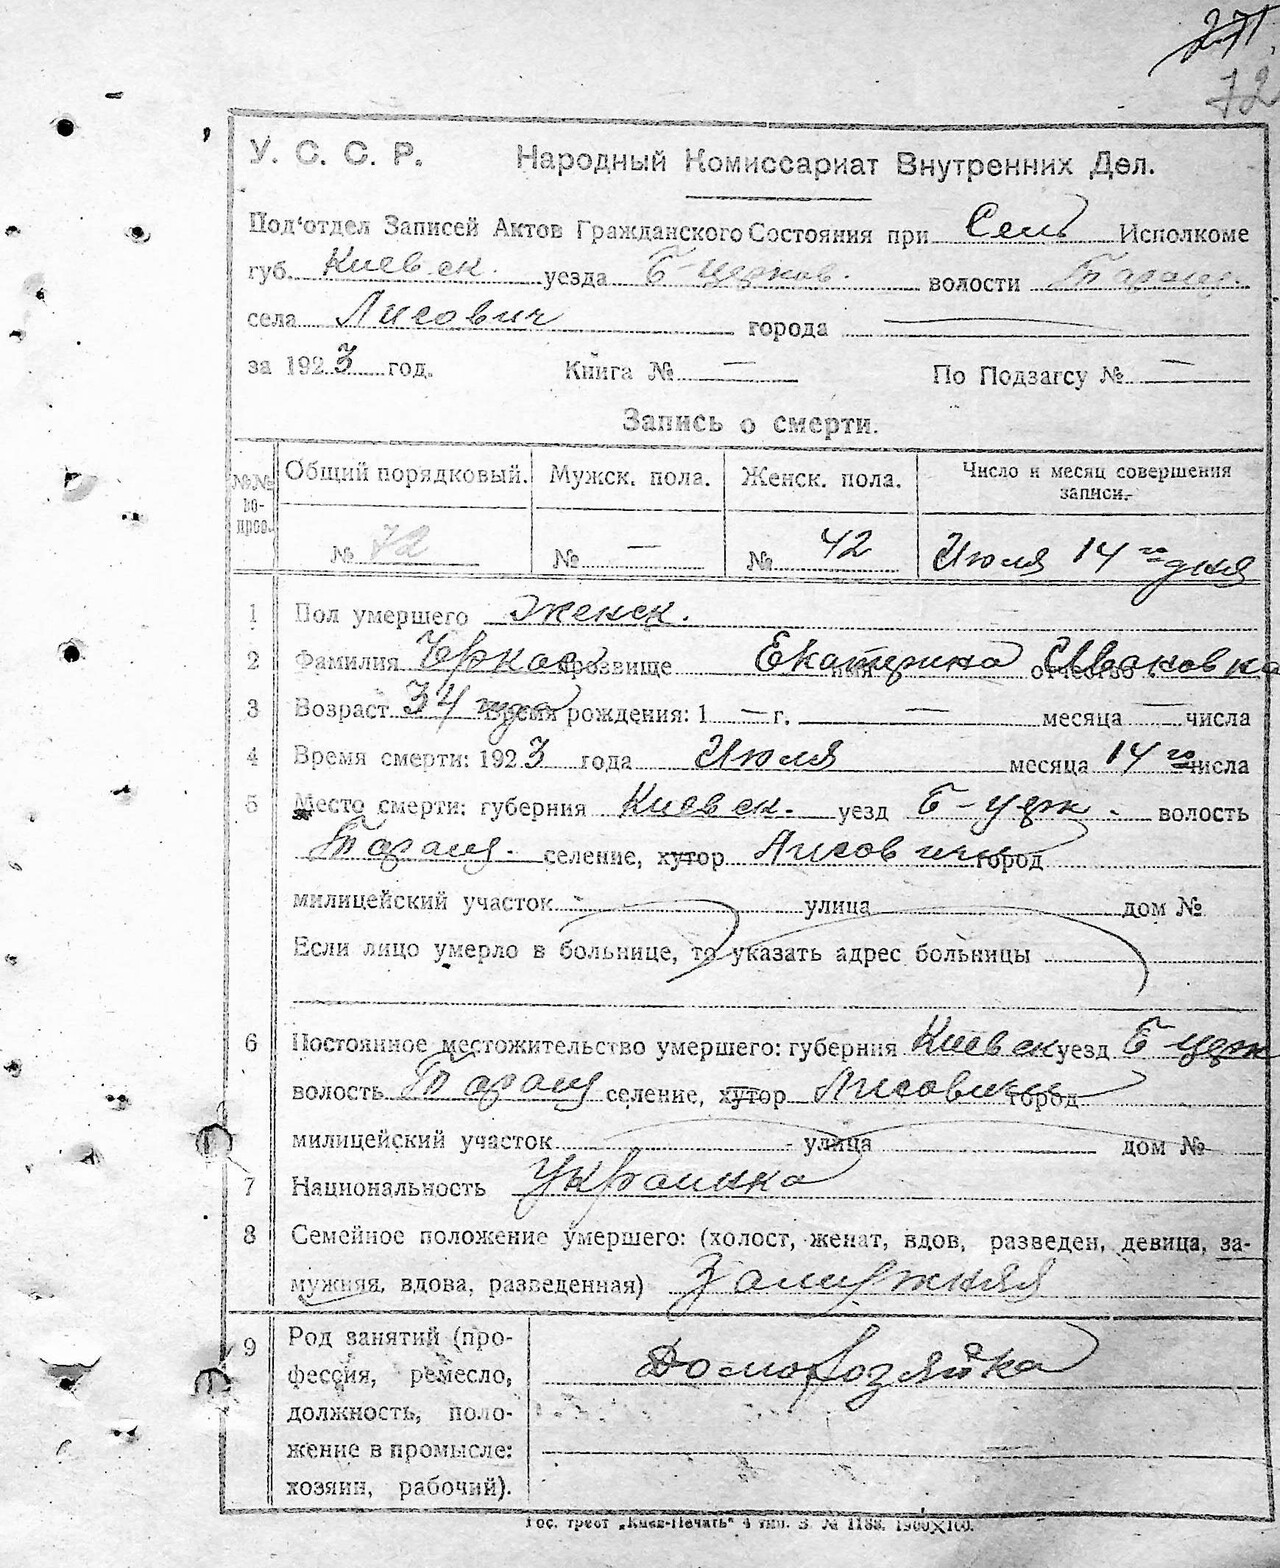 271
72
У. С. С. Р. Народный Комиссариат Внутренних Дел.
Под‘отдел Записей Актов Гражданского Состояния при Сель Исполкоме
губ. Киевск. уезда Б-церков. волости Таращ.
села Лисович города —
за 1923 год. Книга № — По Подзагсу № —
Запись о смерти.
№№ вопров. Общий порядковый. Мужск. пола. Женск. пола. Число и месяц совершения записи.
№ 72 № — № 42 Июля 14го дня
1 Пол умершего Женск.
2 Фамилия Черкас прозвище имя Екатерина отчество Ивановна
3 Возраст 34 года Время рождения: 1 — г. — месяца — числа
4 Время смерти: 1923 года Июля месяца 14го числа
5 Место смерти: губерния Киевск. уезд Б-церк. волость
Таращ. селение, хутор Лисовичи город
милицейский участок улица дом №
Если лицо умерло в больнице, то указать адрес больницы
6 Постоянное местожительство умершего: губерния Киевск уезд Б-церк
волость Таращ селение, хутор Лисовичи город
милицейский участок улица дом №
7 Национальность Украинка
8 Семейное положение умершего: (холост, женат, вдов, разведен, девица, за-
мужняя, вдова, разведенная) Замужняя
9 Род занятий (про-
фессия, ремесло,
должность, поло-
жение в промысле:
хозяин, рабочий).
Домохозяйка
Гос. трест „Киев-Печать“ 4 тип. З. № 1188. 1900×100.